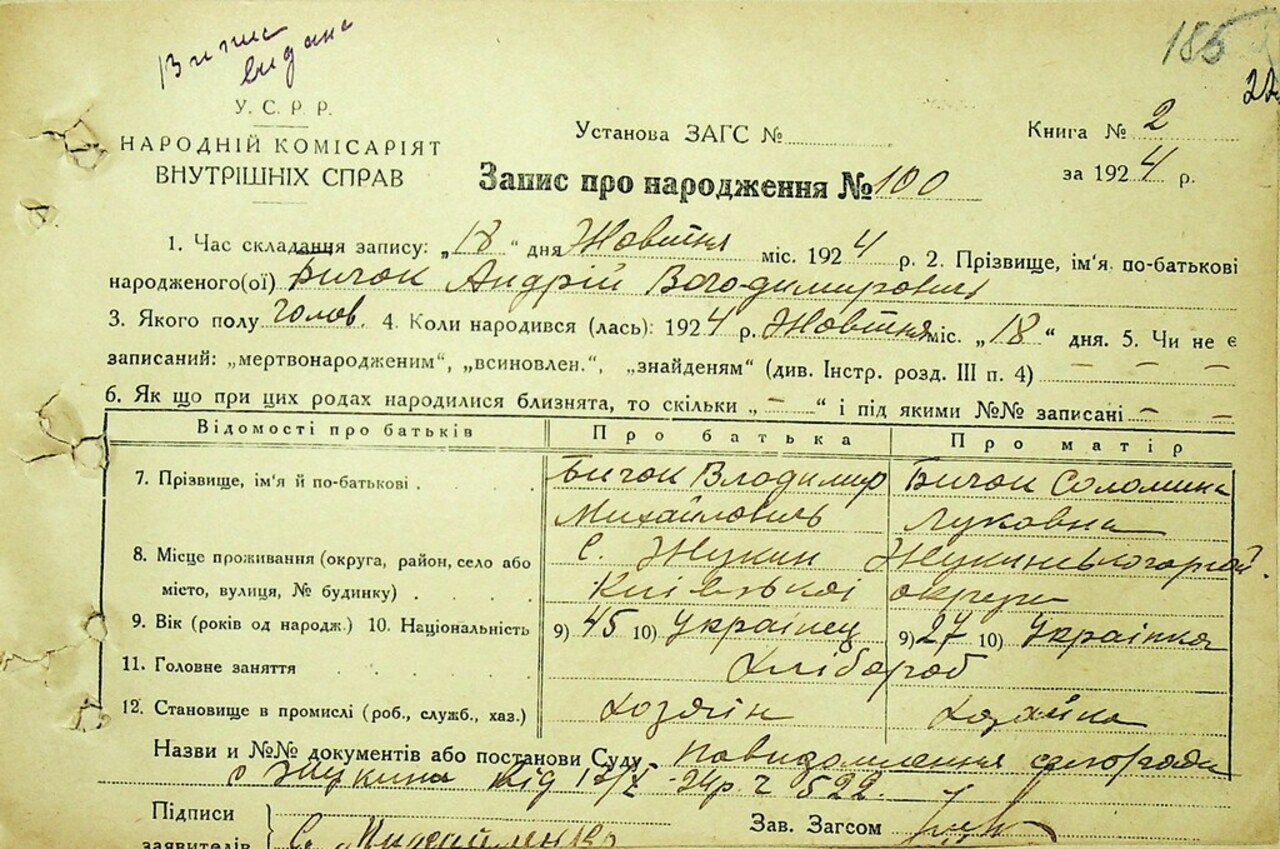 Випис
видано
185
22
У. С. Р. Р.
НАРОДНІЙ КОМІСАРІЯТ
ВНУТРІШНІХ СПРАВ
Установа ЗАГС №
Книга № 2
за 1924 р.
Запис про народження № 100
1. Час складання запису: „18“ дня Жовтня міс. 1924 р. 2. Прізвище, ім'я, по-батькові
народженого(ої) Бичок Андрій Володимирович
3. Якого полу голов. 4. Коли народився (лась): 1924 р. Жовтня міс. „18“ дня. 5. Чи не є
записаний: „мертвонародженим“, „всиновлен.“, „знайденям“ (див. Інстр. розд. III п. 4) — — —
6. Як що при цих родах народилися близнята, то скільки „—“ і під якими №№ записані — —
Відомості про батьків Про батька Про матір
7. Прізвище, ім'я й по-батькові Бичок Владимир Бичок Соломина
Михайлович Луковна
8. Місце проживання (округа, район, село або с. Жукин Жукинського рай.
місто, вулиця, № будинку) Київської округи
9. Вік (років од народж.) 10. Національність 9) 45 10) Українец 9) 27 10) Українка
11. Головне заняття Хлібороб
12. Становище в промислі (роб., служб., хаз.) хозяін хазайка
Назви и №№ документів або постанови Суду Повидомлення сельради
с Жукина від 24р ч 522.
Підписи
заявителів
Зав. Загсом